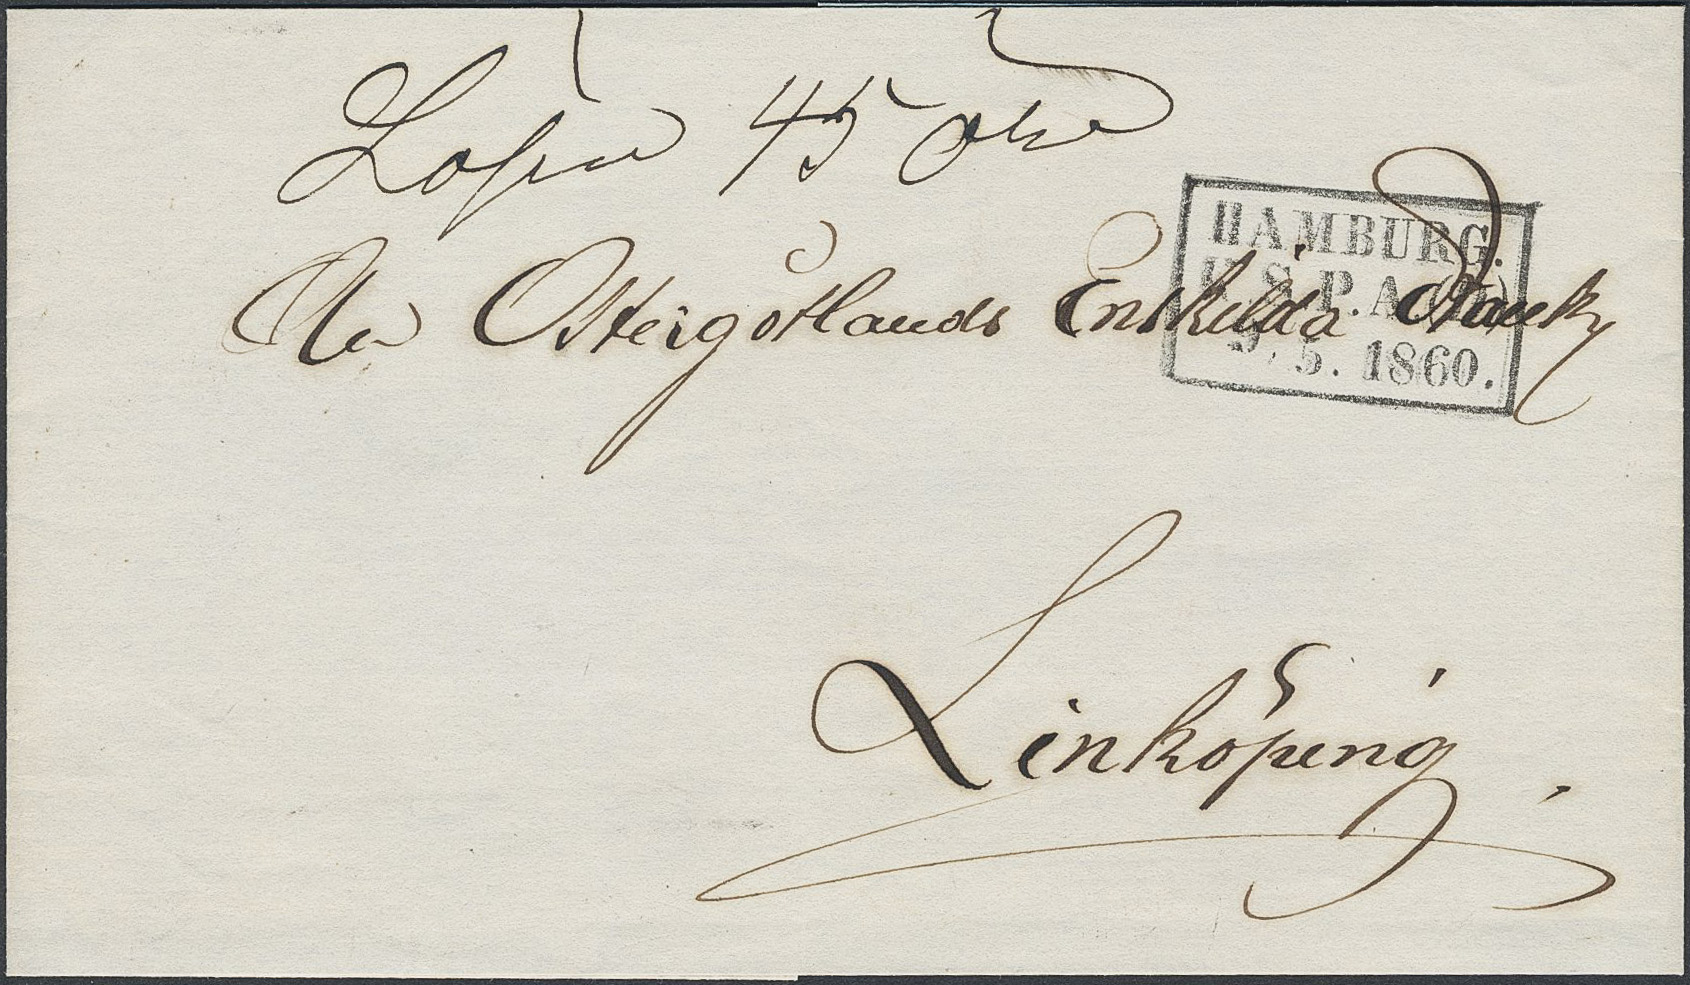 Lösen 45 öre
HAMBURG.
K.S.P.A.(D)
9.5.1860.
Östergötlands Enskilda Bank
Linköping.